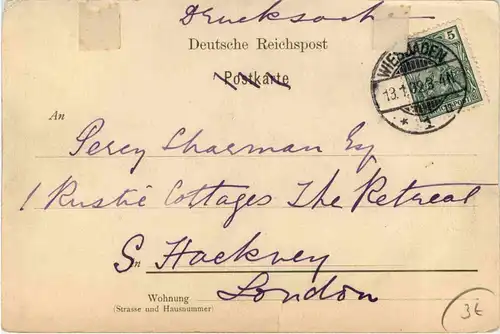 Drucksache
Deutsche Reichspost
Postkarte
5
WIESBADEN
13.1.
1
An
Percy Sharman Esq
1 Rustic Cottages The Retreat
S. Hackney
in
London
Wohnung
(Strasse und Hausnummer)
3€